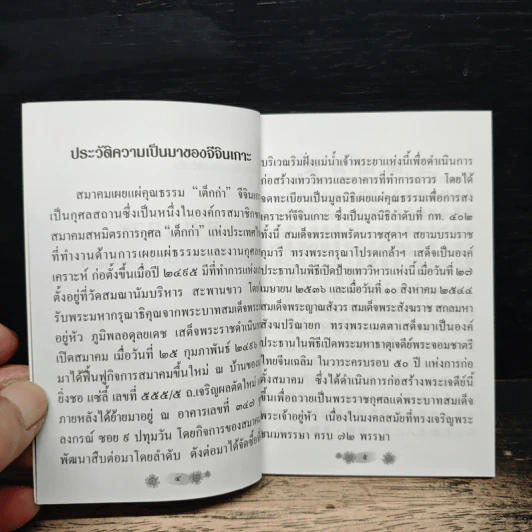 ประวัติความเป็นมาของจีจินเกาะ
สมาคมเผยแผ่คุณธรรม “เต็กก่า” จีจินเกาะ
เป็นกุศลสถานซึ่งเป็นหนึ่งในองค์กรสมาชิก
สมาคมสหมิตรการกุศล “เต็กก่า” แห่งประเทศไ
ที่ทำงานด้านการเผยแผ่ธรรมะและงานกุศล
เคราะห์ ก่อตั้งขึ้นเมื่อปี ๒๔๙๕ มีที่ทำการแห่ง
ตั้งอยู่ที่วัดสมณานัมบริหาร สะพานขาว โดย
รับพระมหากรุณาธิคุณจากพระบาทสมเด็จพระ
อยู่หัว ภูมิพลอดุลยเดช เสด็จพระราชดำเนิน
เปิดสมาคม เมื่อวันที่ ๒๕ กุมภาพันธ์ ๒๔๙๖
มาได้ฟื้นฟูกิจการสมาคมขึ้นใหม่ ณ บ้านของ
ยิ่งชอ แซ่ลี้ เลขที่ ๕๕๕/๕ ถ.เจริญผลตัดใหม่
ภายหลังได้ย้ายมาอยู่ ณ อาคารเลขที่ ๓๔๗
ลงกรณ์ ซอย ๙ ปทุมวัน โดยกิจการของสมาคม
พัฒนาสืบต่อมาโดยลำดับ ดังต่อมาได้จัดซื้อที่
๔
บริเวณริมฝั่งแม่น้ำเจ้าพระยาแห่งนี้เพื่อดำเนินการ
ก่อสร้างเทววิหารและอาคารที่ทำการถาวร โดยได้
จดทะเบียนเป็นมูลนิธิเผยแผ่คุณธรรมเพื่อการสง
เคราะห์จีจินเกาะ ซึ่งเป็นมูลนิธิลำดับที่ กท. ๔๐๒
ทั้งนี้ สมเด็จพระเทพรัตนราชสุดาฯ สยามบรมราช
กุมารี ทรงพระกรุณาโปรดเกล้าฯ เสด็จเป็นองค์
ประธานในพิธีเปิดป้ายเทววิหารแห่งนี้ เมื่อวันที่ ๒๗
เมษายน ๒๕๓๖ และเมื่อวันที่ ๑๐ สิงหาคม ๒๕๔๔
สมเด็จพระญาณสังวร สมเด็จพระสังฆราช สกลมหา
สังฆปริณายก ทรงพระเมตตาเสด็จมาเป็นองค์
ประธานในพิธีเปิดพระมหาธาตุเจดีย์พระจอมชาตรี
ไทยจีนเฉลิม ในวาระครบรอบ ๕๐ ปี แห่งการก่อ
ตั้งสมาคม ซึ่งได้ดำเนินการก่อสร้างพระเจดีย์นี้
ขึ้นเพื่อถวายเป็นพระราชกุศลแด่พระบาทสมเด็จ
พระเจ้าอยู่หัว เนื่องในมงคลสมัยที่ทรงเจริญพระ
ชนมพรรษา ครบ ๗๒ พรรษา
๕